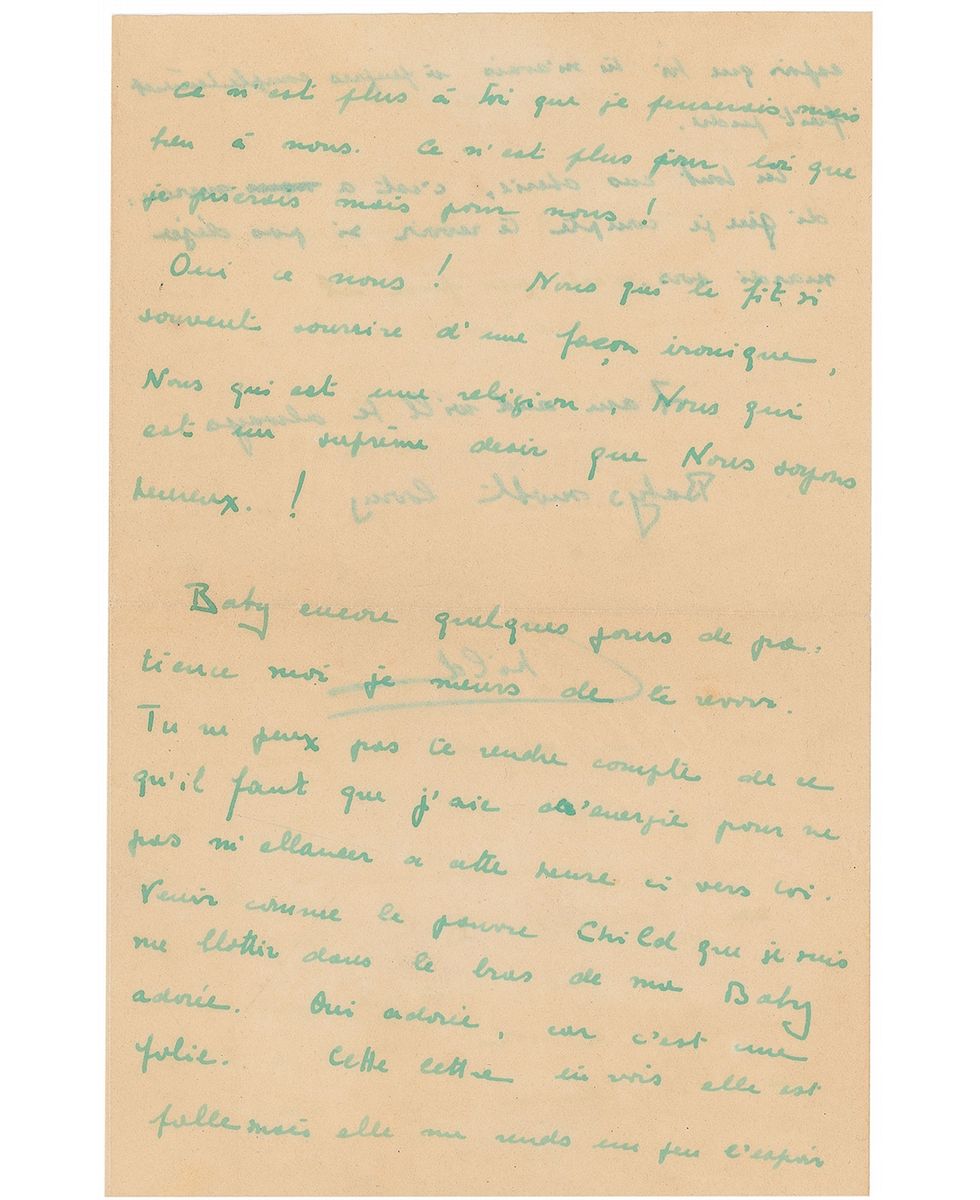 Ce n'est plus à toi que je penserais mais
bien à nous. Ce n'est plus pour toi que
je pierais mais pour nous !
Oui ce nous ! Nous qui te fit si
souvent sourire d'une façon ironique,
Nous qui est une religion, Nous qui
est un suprême desir que Nous soyons
heureux. !
Baby encore quelques jours de pa-
tience moi je meurs de te revoir.
Tu ne peux pas te rendre compte de ce
qu'il faut que j'aie d'energie pour ne
pas m'ellancer a cette heure ci vers toi.
Venir comme le pauvre Child que je suis
me blottir dans le bras de ma Baby
adorée. Oui adorée, car c'est une
folie. Cette lettre tu vois elle est
folle mais elle me rends un peu l'espoir